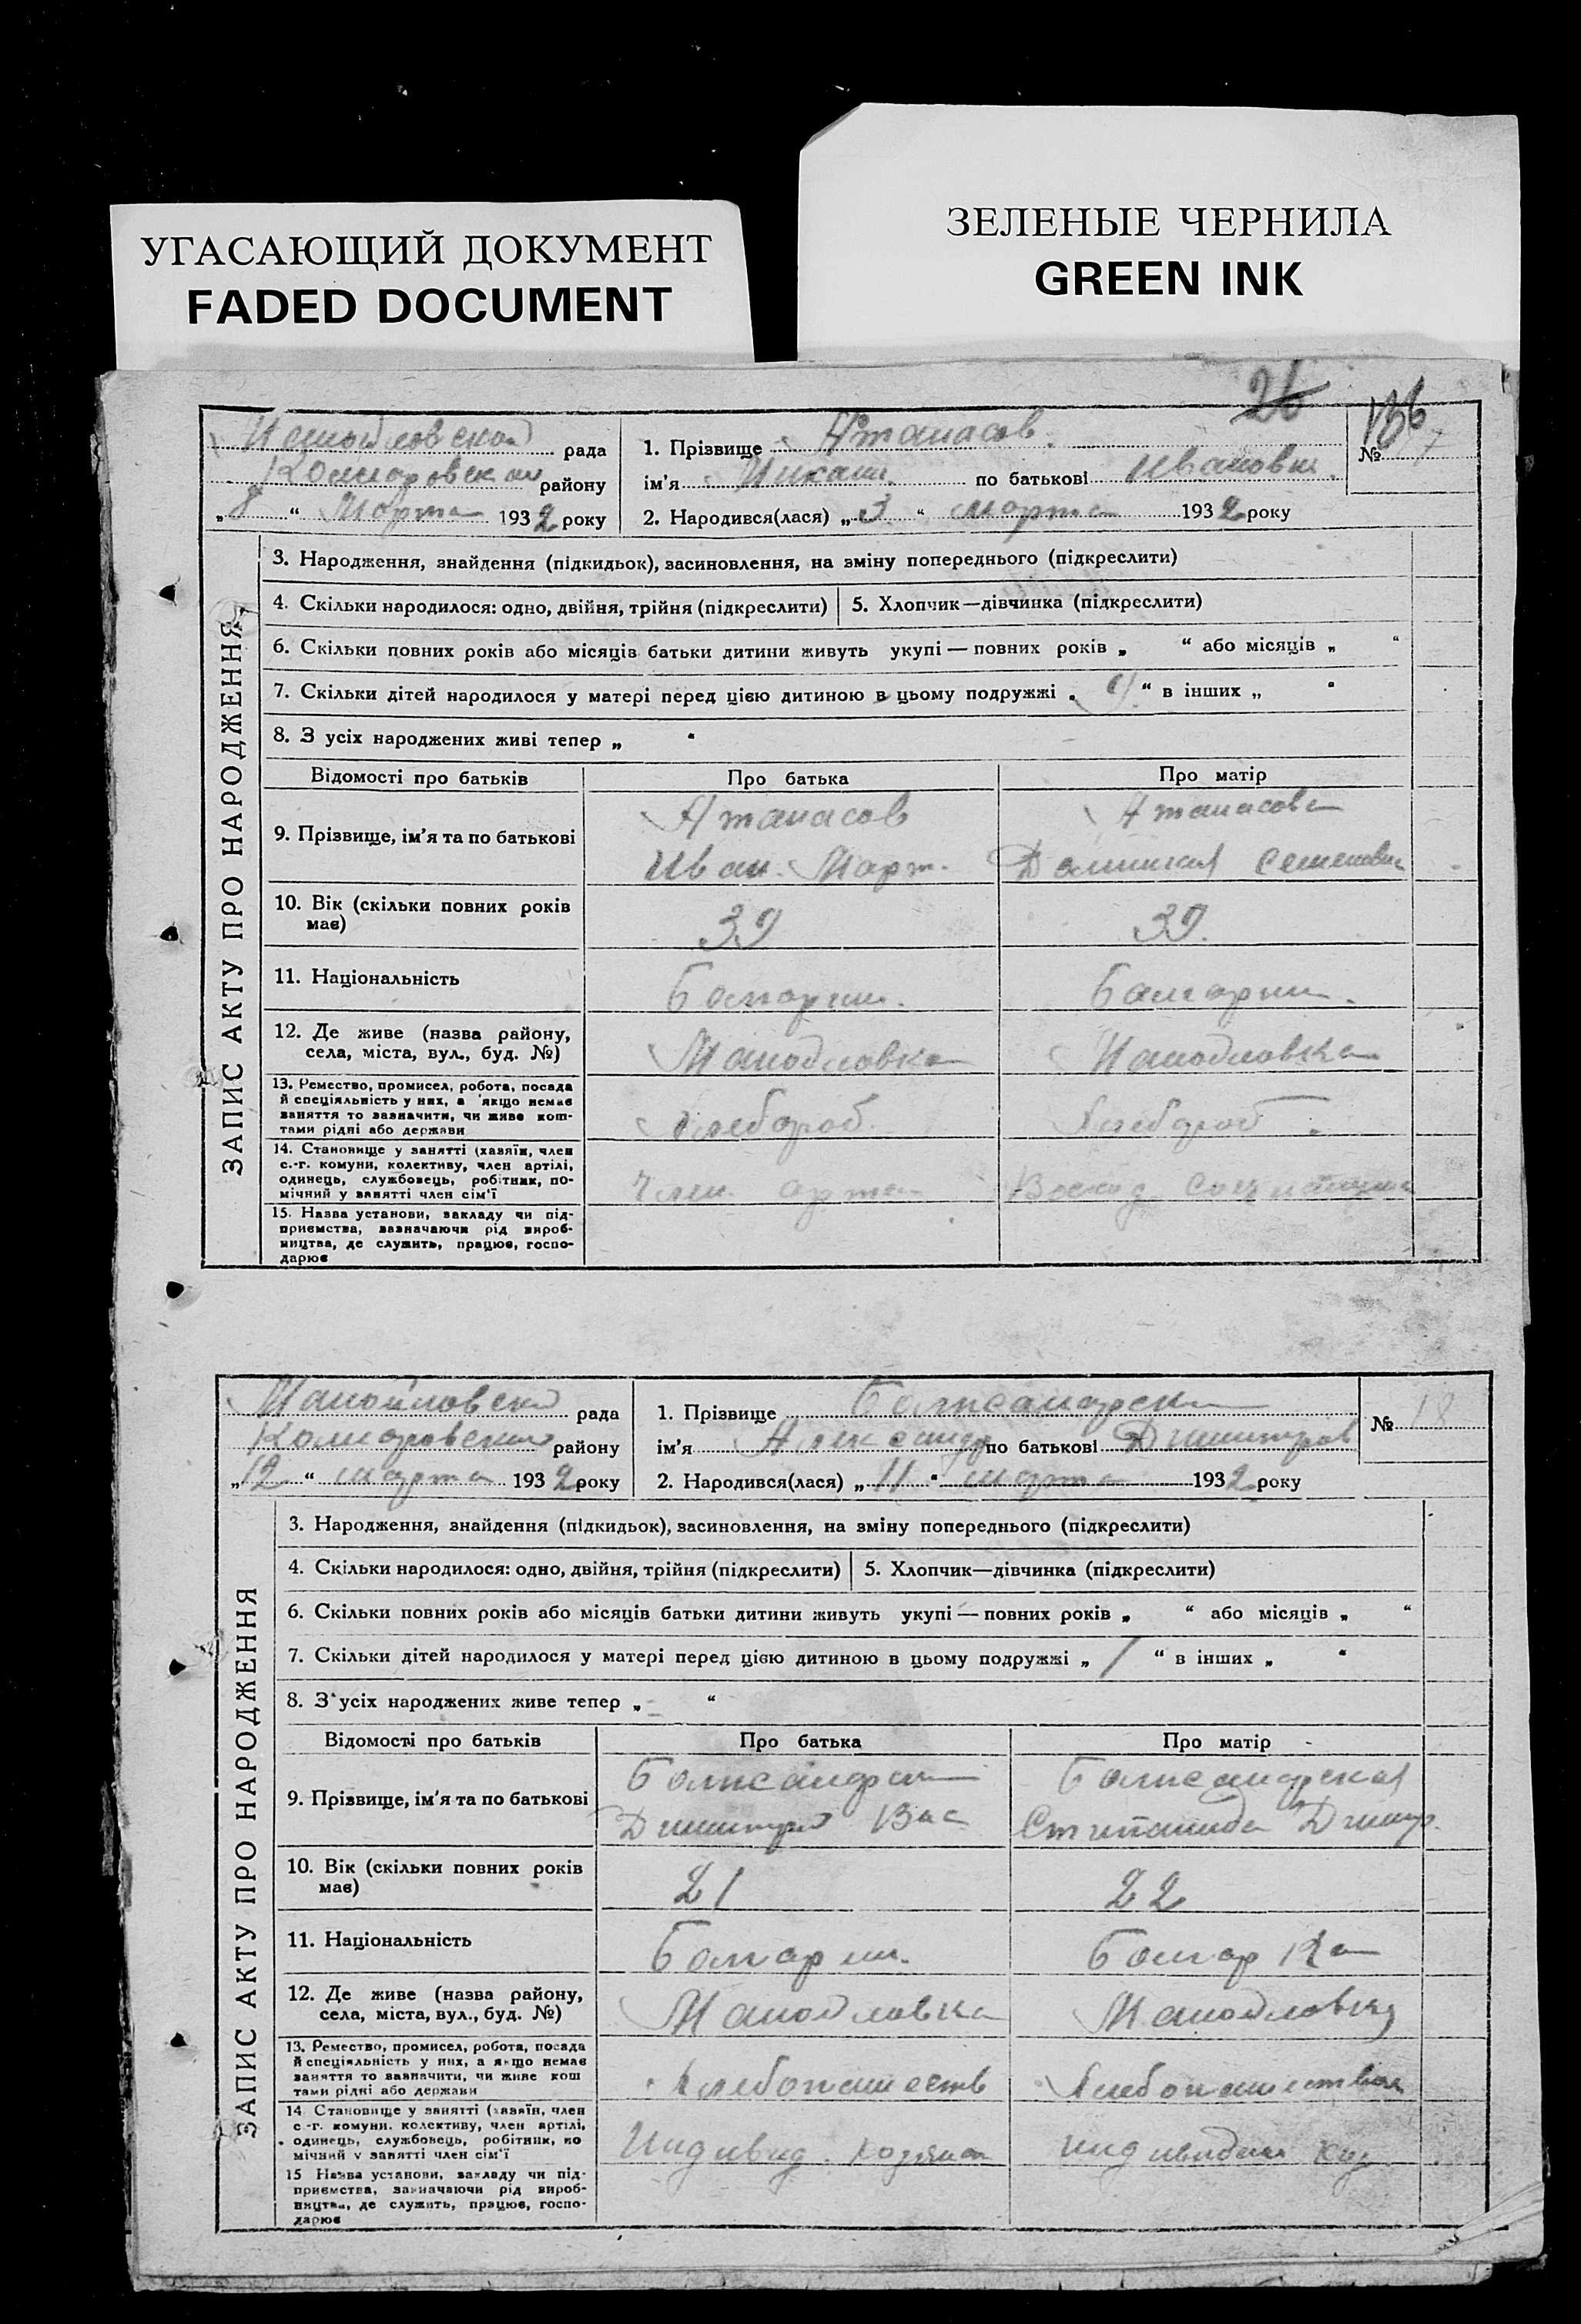 УГАСАЮЩИЙ ДОКУМЕНТ
FADED DOCUMENT
ЗЕЛЕНЫЕ ЧЕРНИЛА
GREEN INK
26
рада
району
„8“ Марта 1932 року
1. Прізвище Атанасов.
ім'я по батькові Ивановн.
2. Народився(лася) „3“ марта 1932 року
№
ЗАПИС АКТУ ПРО НАРОДЖЕННЯ
3. Народження, знайдення (підкидьок), засиновлення, на зміну попереднього (підкреслити)
4. Скільки народилося: одно, двійня, трійня (підкреслити)
5. Хлопчик—дівчинка (підкреслити)
6. Скільки повних років або місяців батьки дитини живуть укупі — повних років „ “ або місяців „ “
7. Скільки дітей народилося у матері перед цією дитиною в цьому подружжі „ “ в інших „ “
8. З усіх народжених живі тепер „ “
Відомості про батьків
Про батька
Про матір
9. Прізвище, ім'я та по батькові
Атанасов
Иван. Март.
Атанасова
10. Вік (скільки повних років має)
39
39.
11. Національність
Болгарин.
12. Де живе (назва району, села, міста, вул., буд. №)
Манойловка
Манойловка
13. Ремество, промисел, робота, посада
й спеціяльність у них, а якщо немає
заняття то зазначити, чи живе кош-
тами рідні або держави
Хлебороб.
Хлебороб.
14. Становище у занятті (хазяїн, член
с.-г. комуни, колективу, член артілі,
одинець, службовець, робітник, по-
мічний у занятті член сім'ї
Член арте
15. Назва установи, закладу чи під-
приємства, зазначаючи рід вироб-
ництва, де служить, працює, госпо-
дарює
Манойловской рада
району
„12“ марта 1932 року
1. Прізвище
ім'я Александр по батькові Димитров
2. Народився(лася) „11“ марта 1932 року
№ 18
ЗАПИС АКТУ ПРО НАРОДЖЕННЯ
3. Народження, знайдення (підкидьок), засиновлення, на зміну попереднього (підкреслити)
4. Скільки народилося: одно, двійня, трійня (підкреслити)
5. Хлопчик—дівчинка (підкреслити)
6. Скільки повних років або місяців батьки дитини живуть укупі — повних років „ “ або місяців „ “
7. Скільки дітей народилося у матері перед цією дитиною в цьому подружжі „ 1 “ в інших „ “
8. З усіх народжених живе тепер „ - “
Відомості про батьків
Про батька
Про матір
9. Прізвище, ім'я та по батькові
Димитрий Вас
Димитр.
10. Вік (скільки повних років має)
21
22
11. Національність
Болгарин.
Болгарка
12. Де живе (назва району, села, міста, вул., буд. №)
Манойловка
Манойловка
13. Ремество, промисел, робота, посада
й спеціяльність у них, а якщо немає
заняття то зазначити, чи живе кош
тами рідні або держави
14. Становище у занятті (хазяїн, член
с-г. комуни. колективу, член артілі,
одинець, службовець, робітник, по
мічний у занятті член сім'ї
Индивид.
15 Назва установи, закладу чи під-
приємства, зазначаючи рід вироб-
ництва, де служить, працює, госпо-
дарює